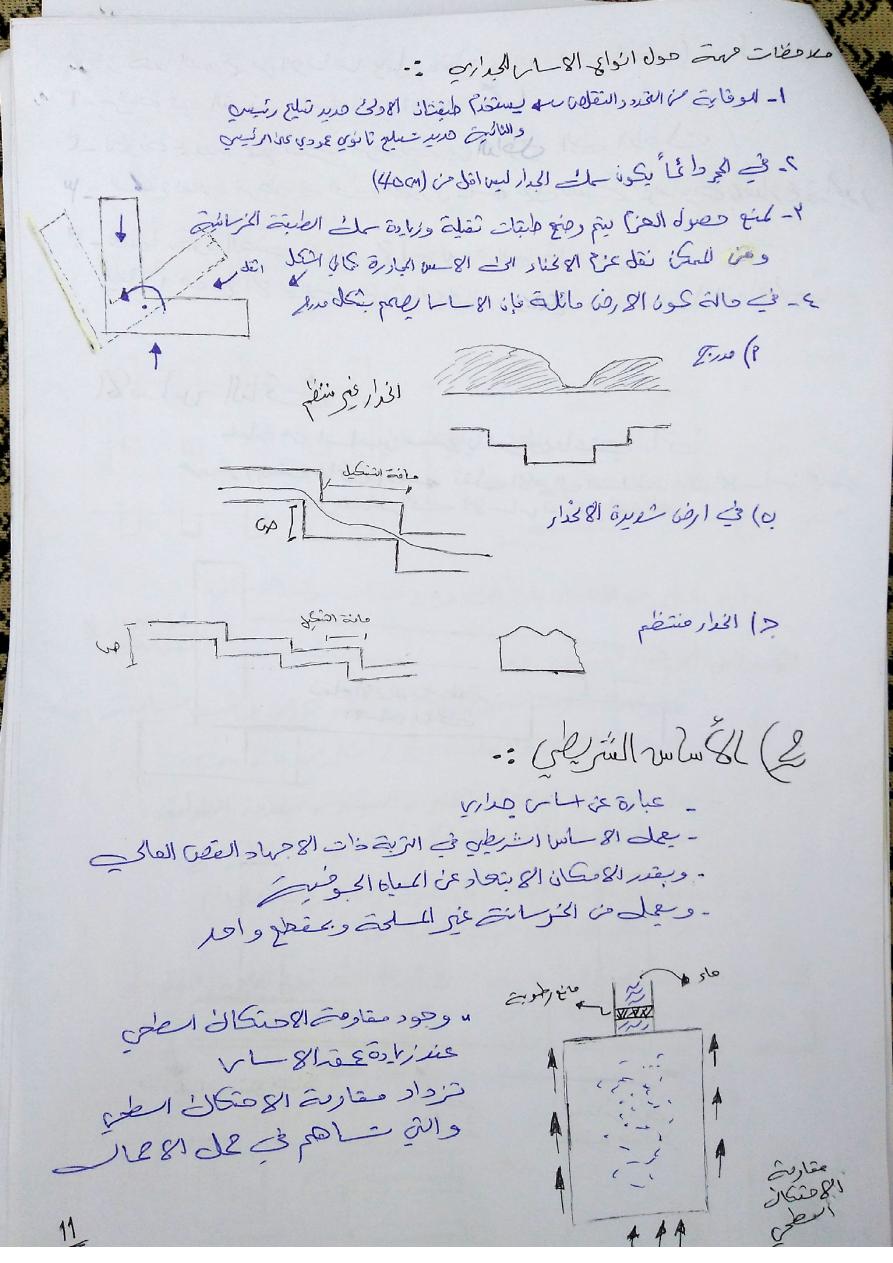 ملاحظات مهمة حول انواع الاساس الجداري :-
١- للوقاية من التمدد والتقلص يستخدم طبقتان الاولى حديد تسليح رئيسي
والثانية حديد تسليح ثانوي عمودي على الرئيسي
٢- في الحجر دائماً يكون سمك الجدار ليس اقل من (40cm)
٣- لمنع حصول العزم يتم وضع طبقات ثقيلة وزيادة سمك الطبقة الخرسانية
ومن الممكن نقل عزم الانحناء الى الاسس المجاورة كما في الشكل
اثقل
٤- في حالة كون الارض مائلة فإن الاساس يصمم بشكل مدرج
أ) مدرج
انحدار غير منتظم
مسافة التشكيل
ب) في ارض شديدة الانحدار
ص
ج) انحدار منتظم
مسافة التشكيل
ص
ح) الأساس الشريطي :-
- عبارة عن اساس جداري
- يعمل الاساس الشريطي في التربة ذات الاجهاد القص العالي
- وبقدر الامكان الابتعاد عن المياه الجوفية
- ويعمل من الخرسانة غير المسلحة وبمقطع واحد
ماء
مانع رطوبة
" وجود مقاومة الاحتكاك السطحي
عند زيادة عمق الاساس
تزداد مقاومة الاحتكاك السطحي
والتي تساهم في حمل الاحمال
مقاومة
الاحتكاك
السطحي
11